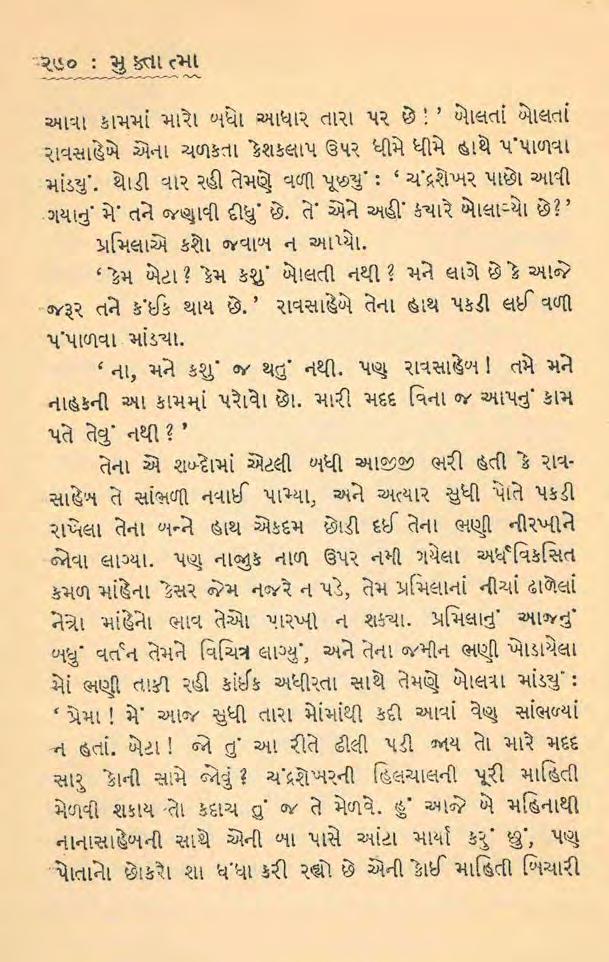 ૨૫૦ : મુક્તાત્મા
આવા કામમાં મારો બધો આધાર તારા પર છે !’ બોલતાં બોલતાં
રાવસાહેબે એના ચળકતા કેશકલાપ ઉપર ધીમે ધીમે હાથે પંપાળવા
માંડયું. થોડી વાર રહી તેમણે વળી પૂછયું : ‘ ચંદ્રશેખર પાછો આવી
ગયાનું મેં તને જણાવી દીધું છે. તેં એને અહીં કયારે બોલાવ્યો છે?’
પ્રમિલાએ કશો જવાબ ન આપ્યો.
‘ કેમ બેટા ? કેમ કશું બોલતી નથી ? મને લાગે છે કે આજે
જરૂર તને કંઈક થાય છે.’ રાવસાહેબે તેના હાથ પકડી લઈ વળી
પંપાળવા માંડયા.
‘ ના, મને કશું જ થતું નથી. પણ રાવસાહેબ ! તમે મને
નાહકની આ કામમાં પરોવો છો. મારી મદદ વિના જ આપનું કામ
પતે તેવું નથી ? ’
તેના એ શબ્દોમાં એટલી બધી આજીજી ભરી હતી કે રાવ-
સાહેબ તે સાંભળી નવાઈ પામ્યા, અને અત્યાર સુધી પોતે પકડી
રાખેલા તેના બન્ને હાથ એકદમ છોડી દઈ તેના ભણી નીરખીને
જોવા લાગ્યા. પણ નાજુક નાળ ઉપર નમી ગયેલા અર્ધવિકસિત
કમળ માંહેના કેસર જેમ નજરે ન પડે, તેમ પ્રમિલાનાં નીચાં ઢાળેલાં
નેત્રો માંહેનો ભાવ તેઓ પારખી ન શકયા. પ્રમિલાનું આજનું
બધું વર્તન તેમને વિચિત્ર લાગ્યું, અને તેના જમીન ભણી ખોડાયેલા
મોં ભણી તાકી રહી કાંઈક અધીરતા સાથે તેમણે બોલવા માંડયું :
‘ પ્રેમા ! મેં આજ સુધી તારા મોંમાંથી કદી આવાં વેણ સાંભળ્યાં
ન હતાં. બેટા ! જો તું આ રીતે ઢીલી પડી જાય તો મારે મદદ
સારુ કોની સામે જોવું ? ચંદ્રશેખરની હિલચાલની પૂરી માહિતી
મેળવી શકાય તો કદાચ તું જ તે મેળવે. હું આજે બે મહિનાથી
નાનાસાહેબની સાથે એની બા પાસે આંટા માર્યા કરું છું, પણ
પોતાનો છોકરો શા ધંધા કરી રહ્યો છે એની કોઈ માહિતી બિચારી